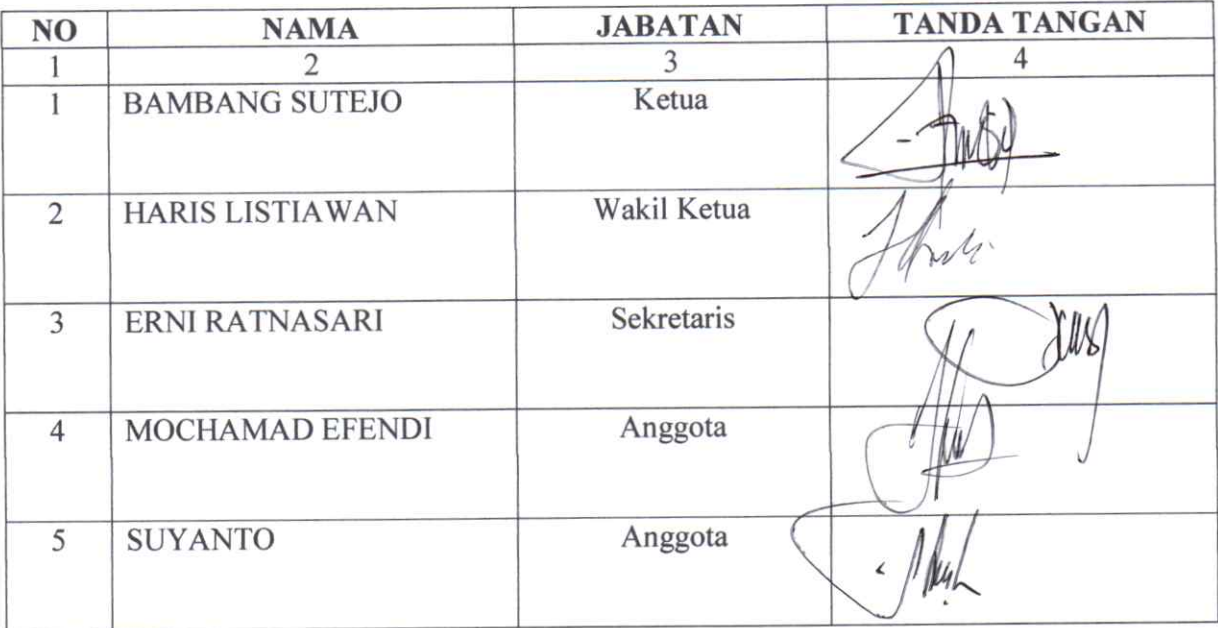 NO NAMA JABATAN TANDA TANGAN
1 2 3 4
1 BAMBANG SUTEJO Ketua
2 HARIS LISTIAWAN Wakil Ketua
3 ERNI RATNASARI Sekretaris
4 MOCHAMAD EFENDI Anggota
5 SUYANTO Anggota